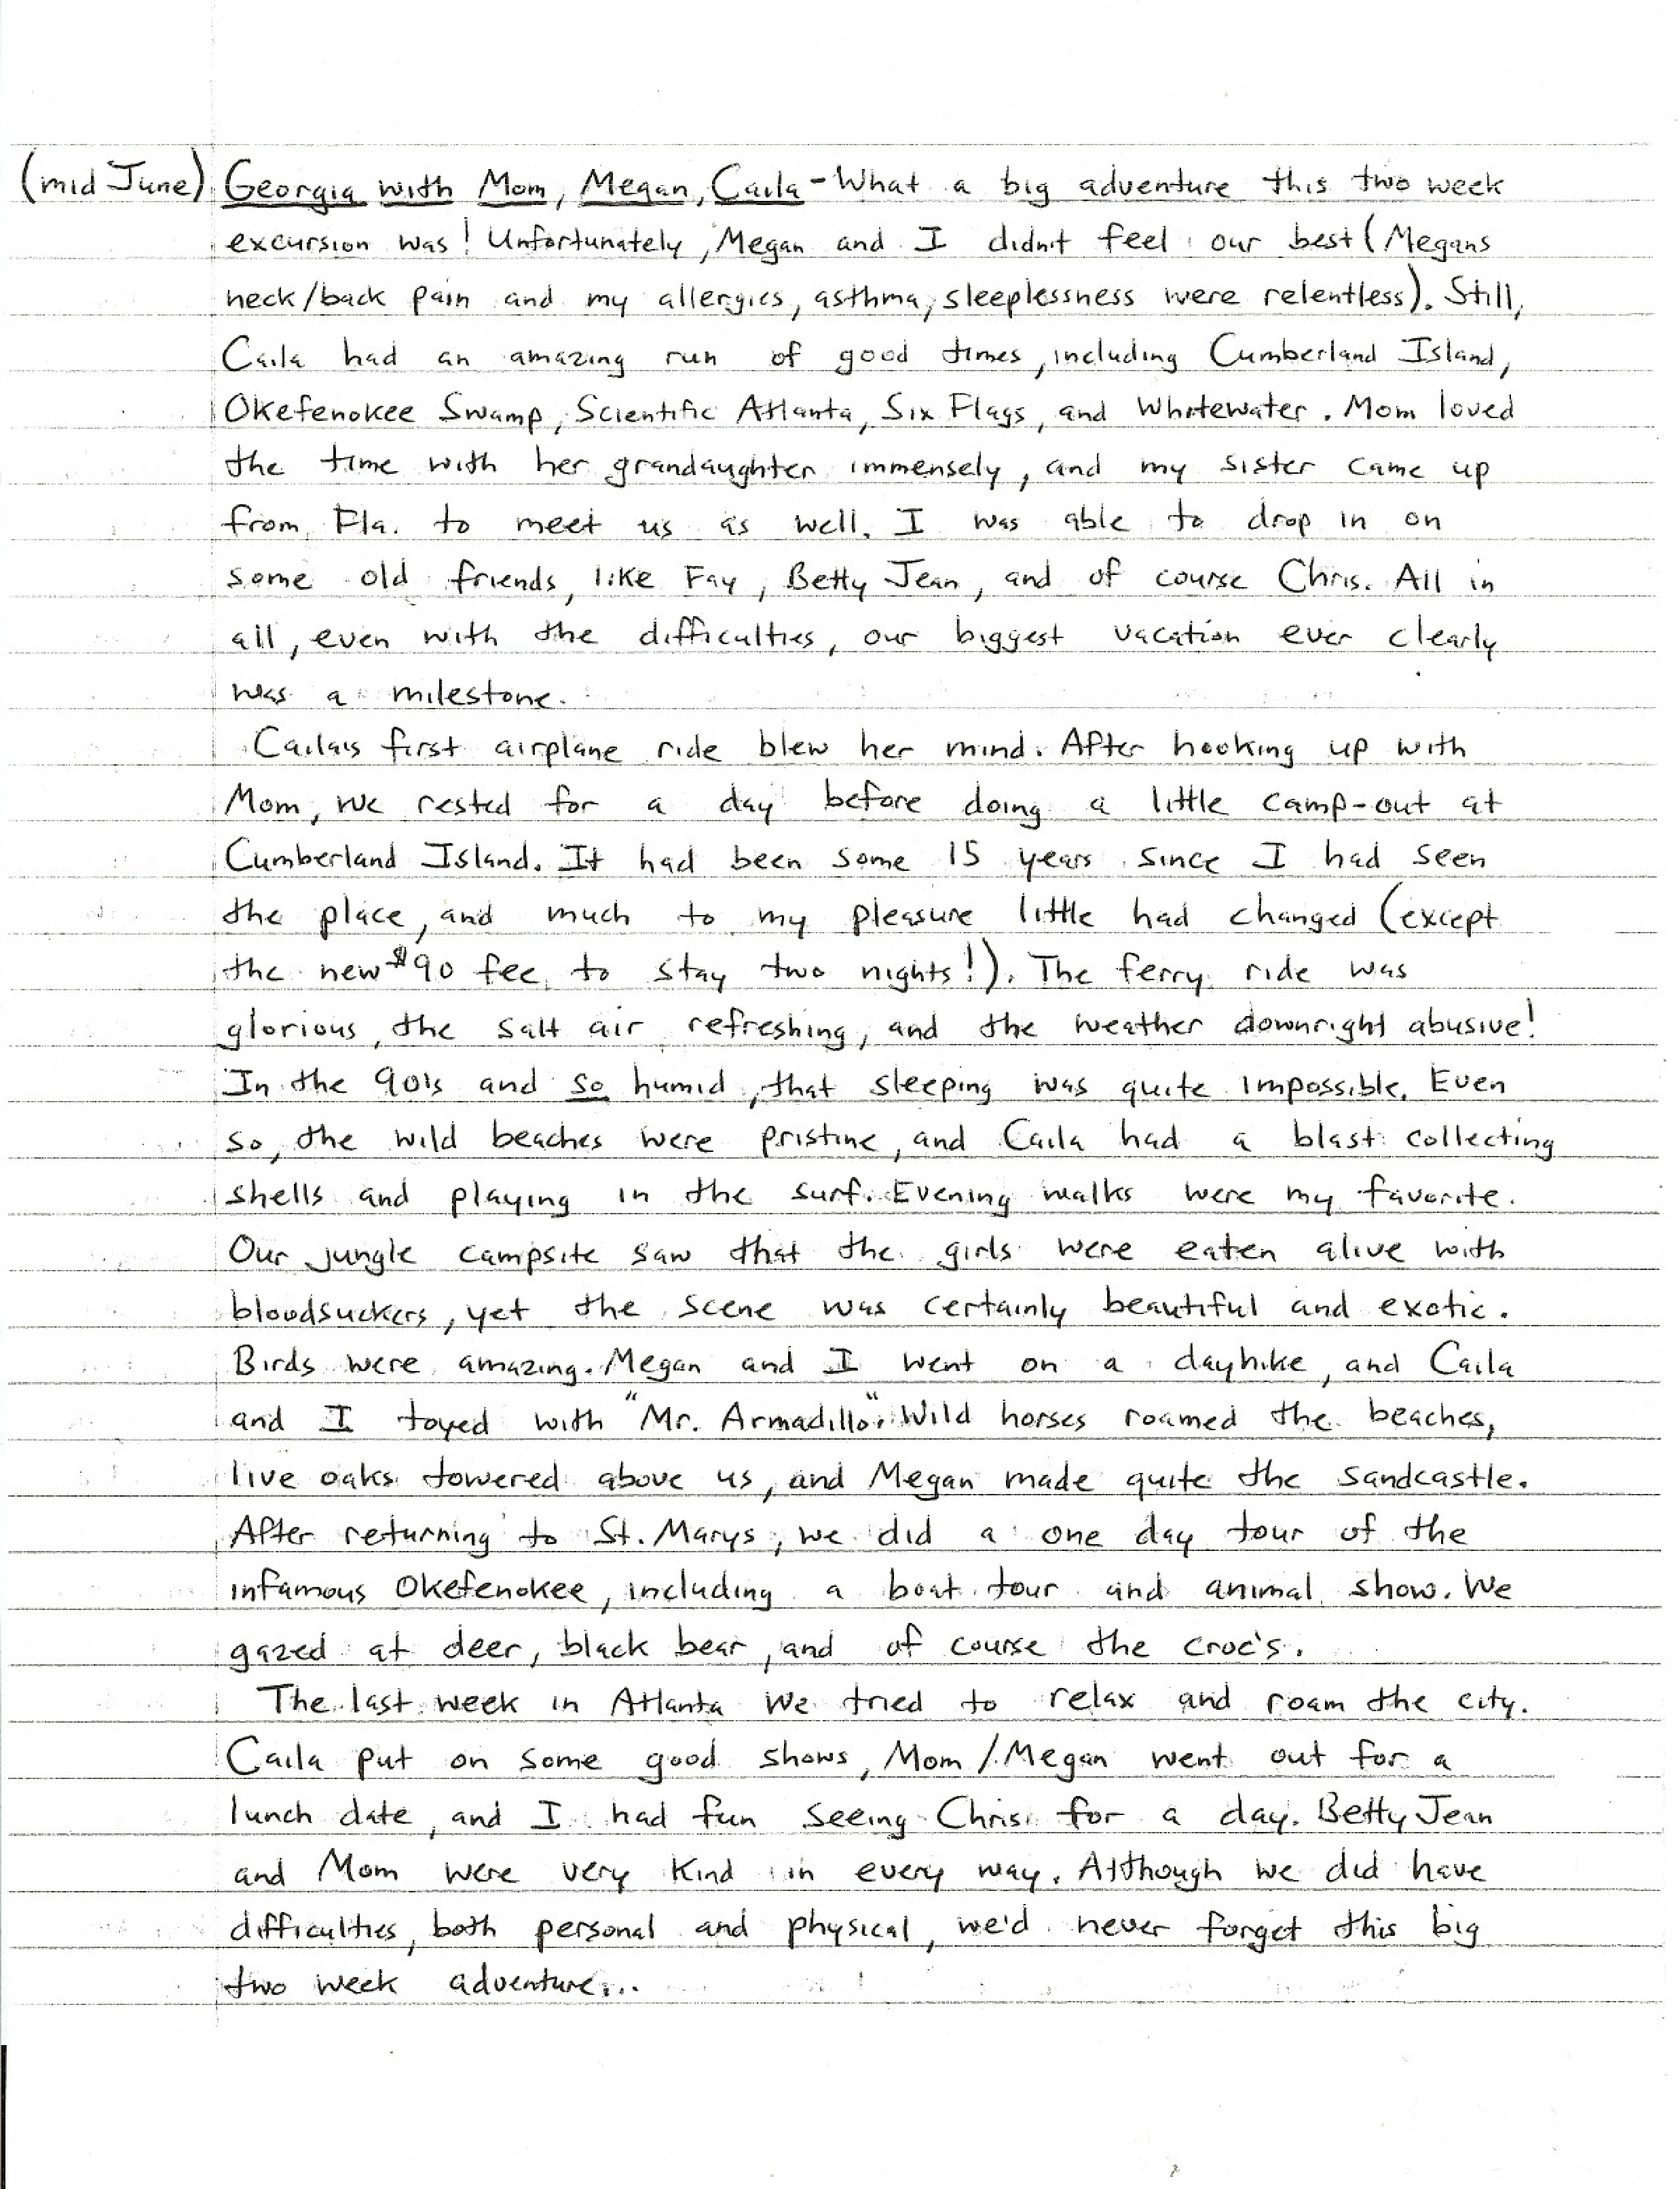 (mid June) Georgia with Mom, Megan, Caila - What a big adventure this two week
excursion was! Unfortunately, Megan and I didn't feel our best (Megans
neck/back pain and my allergies, asthma, sleeplessness were relentless). Still,
Caila had an amazing run of good times, including Cumberland Island,
Okefenokee Swamp, Scientific Atlanta, Six Flags, and Whitewater. Mom loved
the time with her grandaughter immensely, and my sister came up
from Fla. to meet us as well. I was able to drop in on
some old friends, like Fay, Betty Jean, and of course Chris. All in
all, even with the difficulties, our biggest vacation ever clearly
was a milestone.
Caila's first airplane ride blew her mind. After hooking up with
Mom, we rested for a day before doing a little camp-out at
Cumberland Island. It had been some 15 years since I had seen
the place, and much to my pleasure little had changed (except
the new $90 fee to stay two nights!). The ferry ride was
glorious, the salt air refreshing, and the weather downright abusive!
In the 90's and so humid, that sleeping was quite impossible. Even
so, the wild beaches were pristine, and Caila had a blast collecting
shells and playing in the surf. Evening walks were my favorite.
Our jungle campsite saw that the girls were eaten alive with
bloodsuckers, yet the scene was certainly beautiful and exotic.
Birds were amazing. Megan and I went on a dayhike, and Caila
and I toyed with "Mr. Armadillo". Wild horses roamed the beaches,
live oaks towered above us, and Megan made quite the sandcastle.
After returning to St. Marys, we did a one day tour of the
infamous Okefenokee, including a boat tour and animal show. We
gazed at deer, black bear, and of course the croc's.
The last week in Atlanta we tried to relax and roam the city.
Caila put on some good shows, Mom/Megan went out for a
lunch date, and I had fun seeing Chris for a day. Betty Jean
and Mom were very kind in every way. Although we did have
difficulties, both personal and physical, we'd never forget this big
two week adventure...